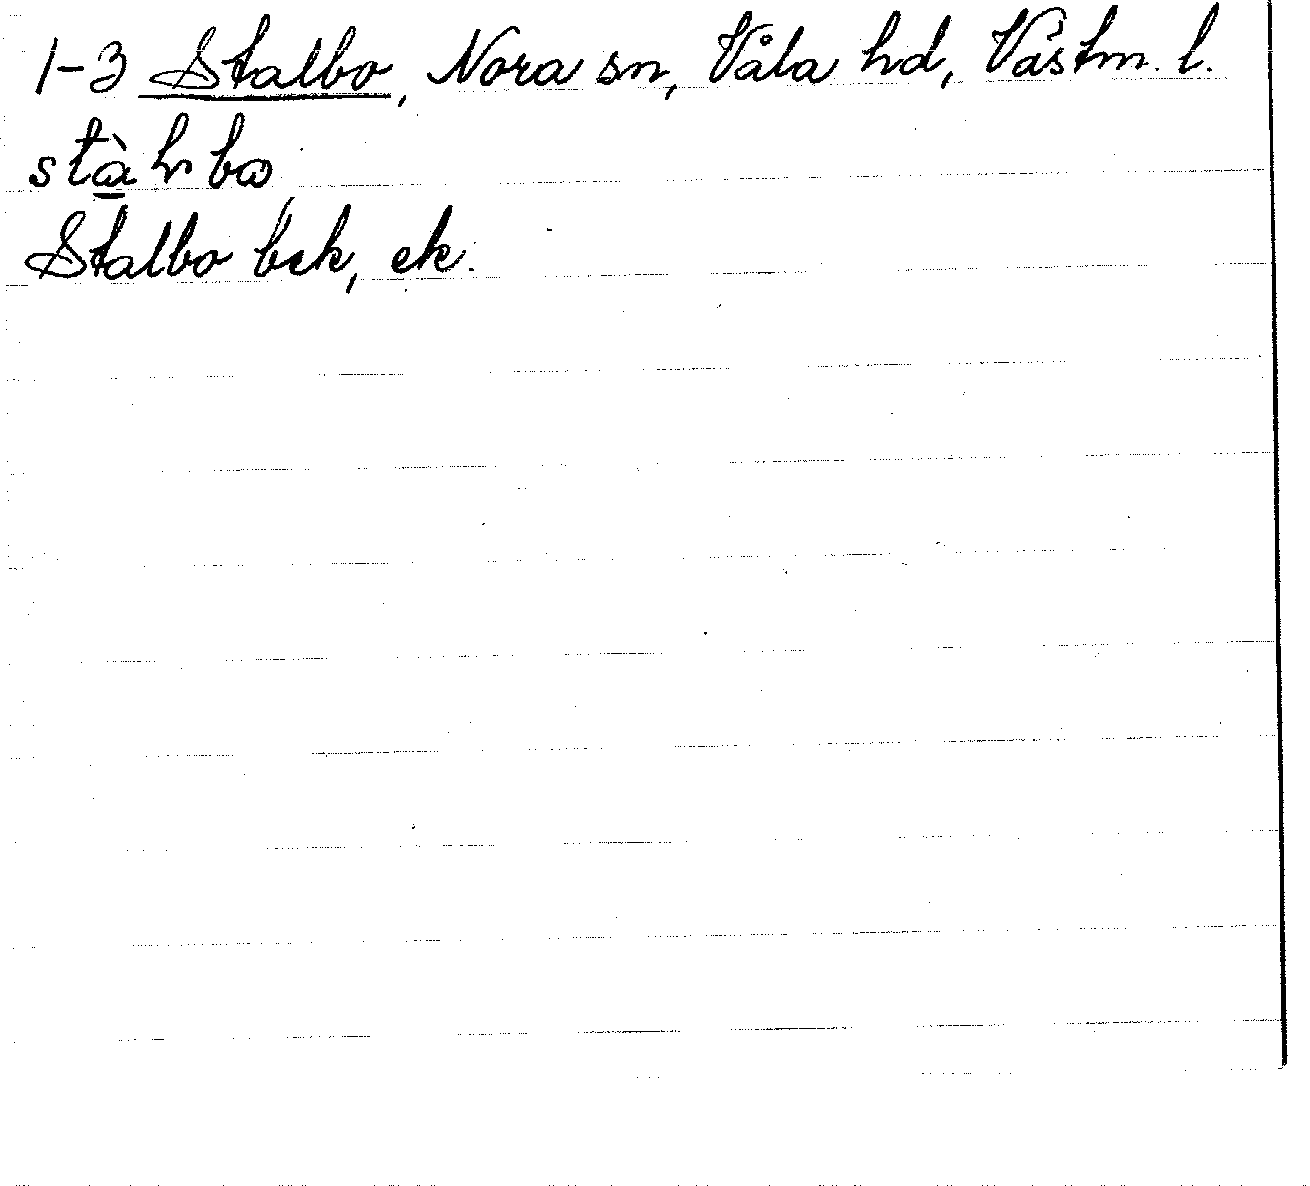 1-3 Stalbo, Nora sn, Våla hd, Västm. l.
Stalbo bek, ek.